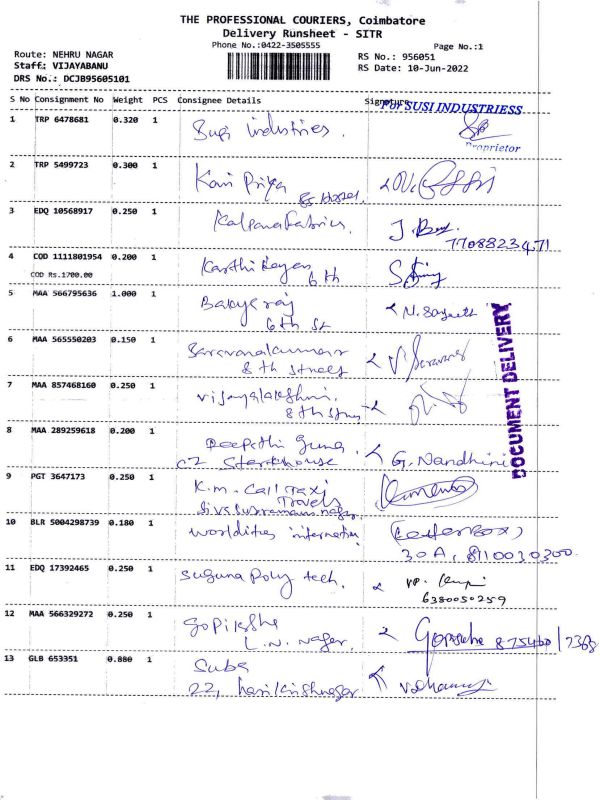 THE PROFESSIONAL COURIERS, Coimbatore
Delivery Runsheet - SITR
Phone No.:0422-3505555
Page No.:1
Route: NEHRU NAGAR
Staff: VIJAYABANU
DRS No.: DCJB95605101
RS No.: 956051
RS Date: 10-Jun-2022
S No Consignment No Weight PCS Consignee Details Signature
For SUSI INDUSTRIESS
1 TRP 6478681 0.320 1 Susi industries.
Proprietor
2 TRP 5499723 0.300 1 Kavi Priya
Hostel
3 EDQ 10568917 0.250 1 Kalpana Fabrics
7708823471
4 COD 1111801954 0.200 1 Karthikeyan
COD Rs.1700.00 6th
5 MAA 566795636 1.000 1 Bakyaraj
6th St
6 MAA 565550203 0.150 1 Saravanakumar
8th street
7 MAA 857468160 0.250 1 Vijayalakshmi.
8th
8 MAA 289259618 0.200 1 Deepthi
G. Nandhini
9 PGT 3647173 0.250 1 K.m. Call Taxi
Travels
10 BLR 5004298739 0.180 1 (Letter Box)
30A, 8110030300
11 EDQ 17392465 0.250 1 Suguna Poly tech.
6380050259
12 MAA 566329272 0.250 1 Gopiksha
L.N. Nagar.
13 GLB 653351 0.880 1 Suba
22,
DOCUMENT DELIVERY